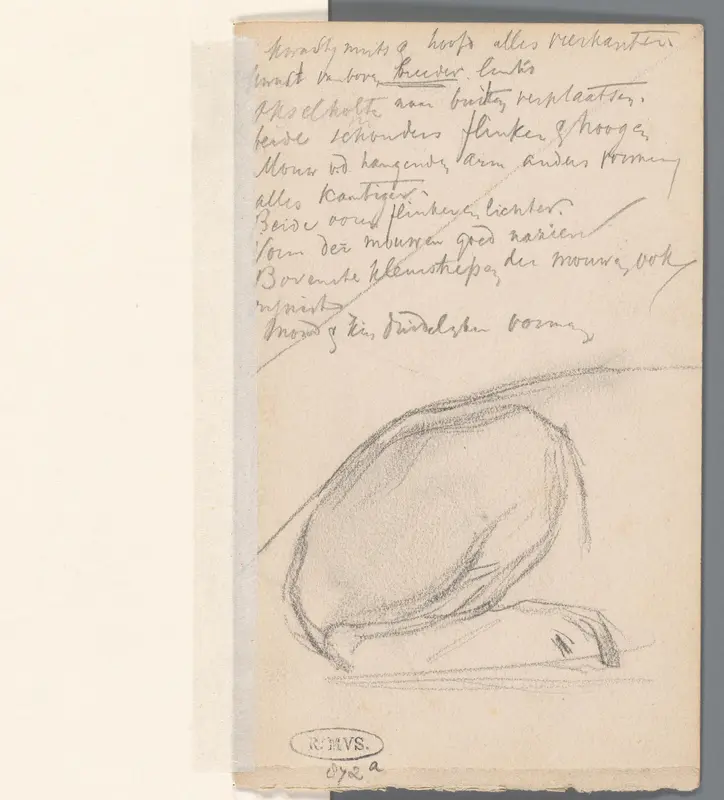 kwastj muts & hoofd alles vierkanter.
van boven breeder. links
okselholte naar buiten verplaatsen.
beide schouders flinker & hooger
Mouw v.d hangenden arm anders vormen
alles kantiger.
Beide ooren flinker en lichter.
Vorm der mouwen goed nazien
Bovenste der mouwen ook
Mond & kin duidelyker vormen
R. MVS.
872 a